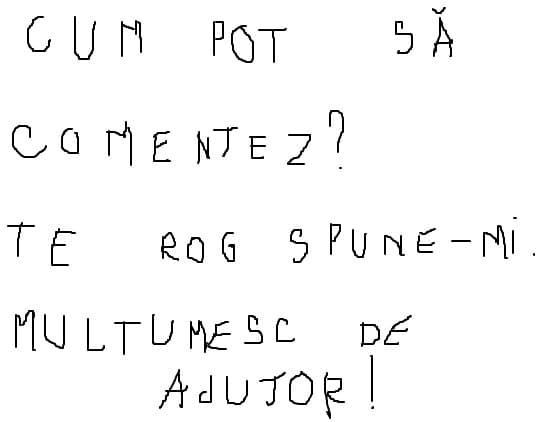 CUM POT SĂ
COMENTEZ?
TE ROG SPUNE-Mi.
MULTUMESC DE
AJUTOR!